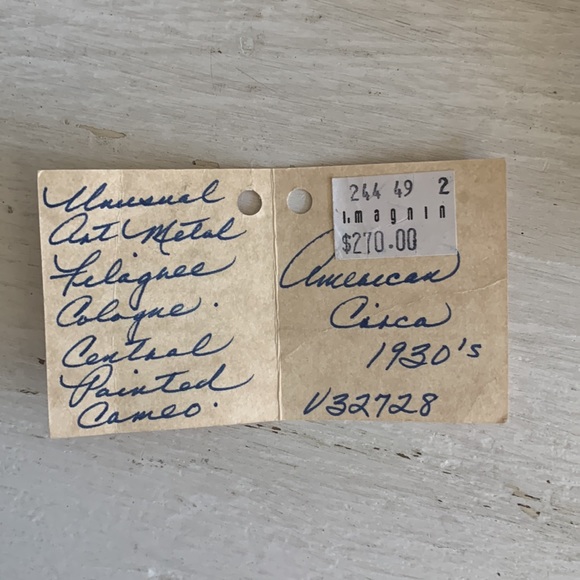 Unusual
Art Metal
Filagree
Cologne.
Central
Painted
Cameo.
244 49 2
I. magnin
$270.00
American
Circa
1930's
V32728